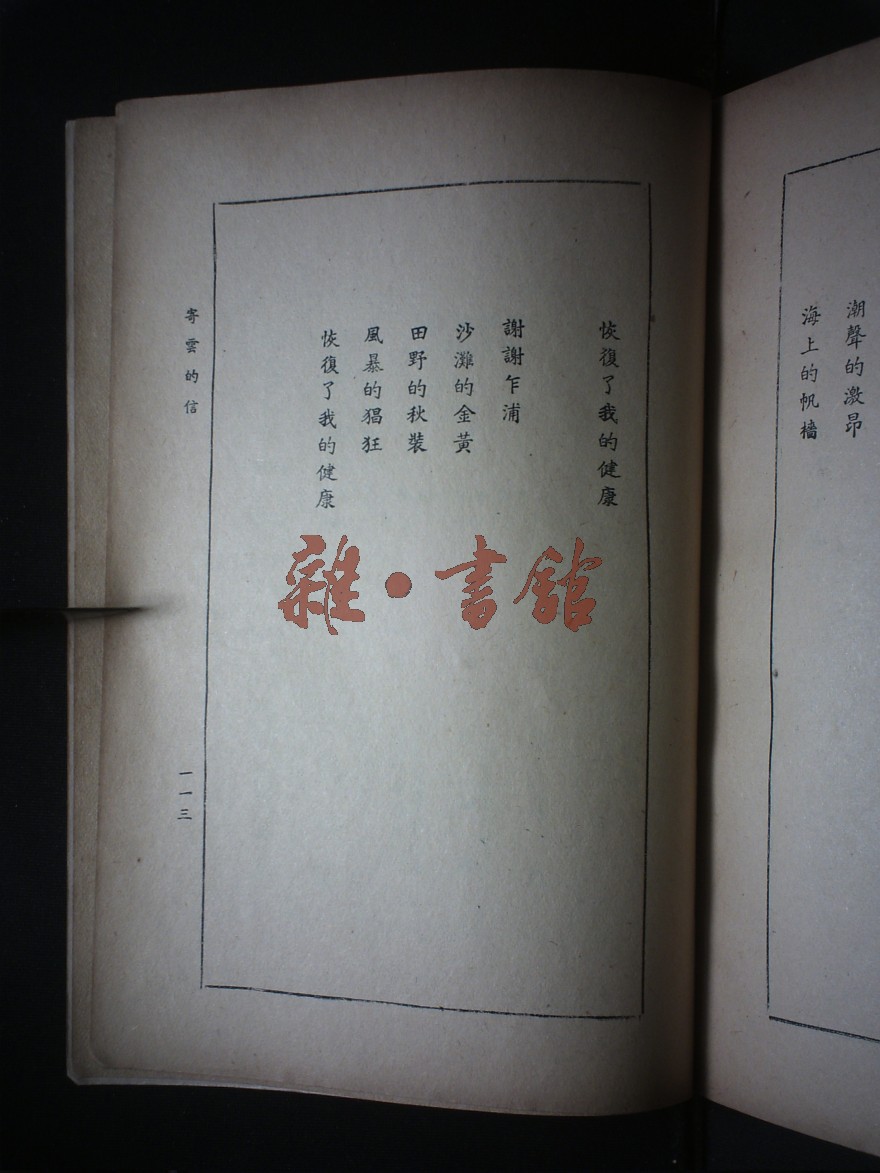 潮聲的激昂
海上的帆檣
恢復了我的健康
謝謝乍浦
沙灘的金黃
田野的秋裝
風暴的猖狂
恢復了我的健康
寄雲的信
一一三
雜·書館